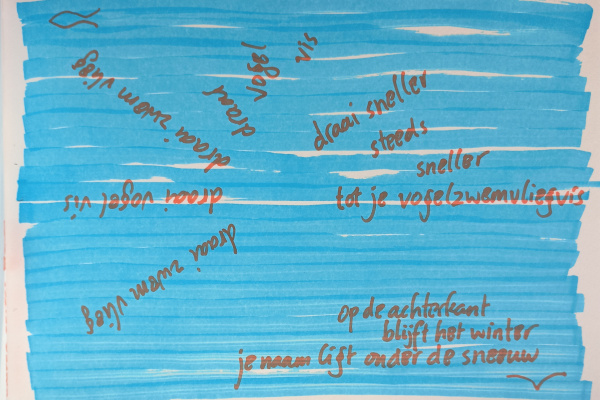 draai zwem vlieg
draai vogel vis
draai zwem vlieg
draai
vogel
vis
draai sneller
steeds
sneller
tot je vogelzwemvliegvis
op de achterkant
blijft het winter
je naam ligt onder de sneeuw